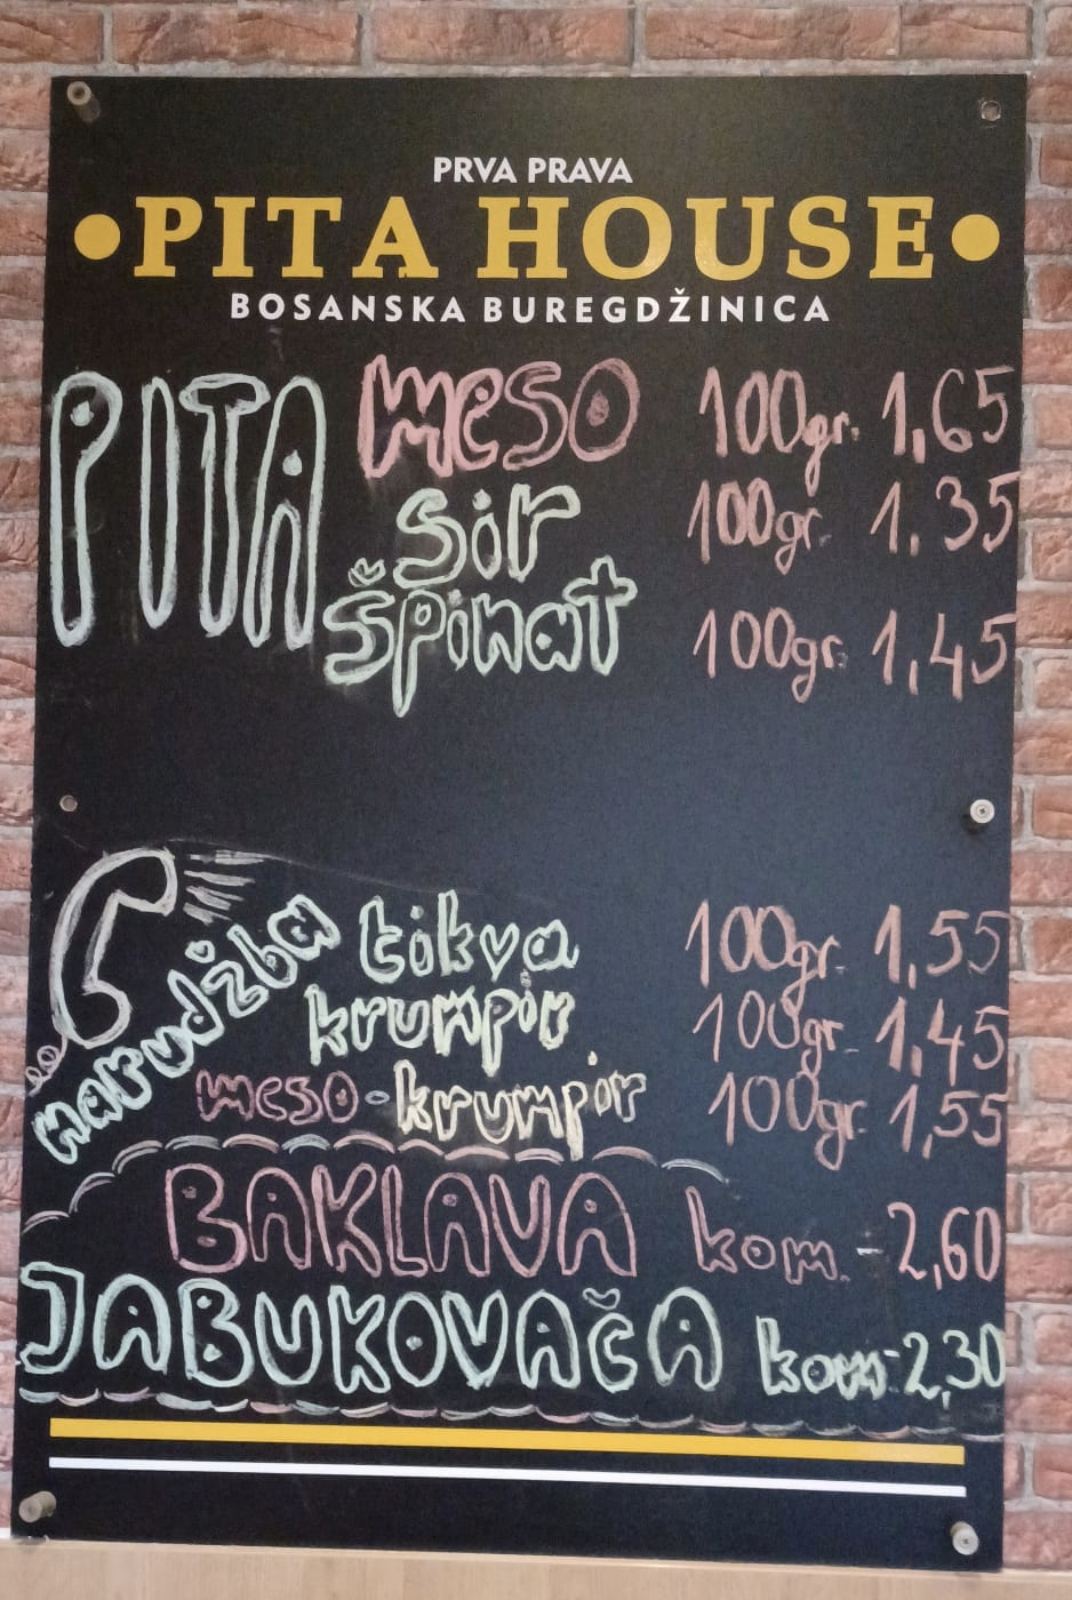 PRVA PRAVA
•PITA HOUSE•
BOSANSKA BUREGDŽINICA
PITA meso 100gr. 1,65
sir 100gr. 1.35
špinat 100gr. 1,45
narudžba tikva 100gr. 1,55
krumpir 100gr. 1,45
meso-krumpir 100gr. 1,55
BAKLAVA kom. - 2,60
JABUKOVAČA kom - 2,30